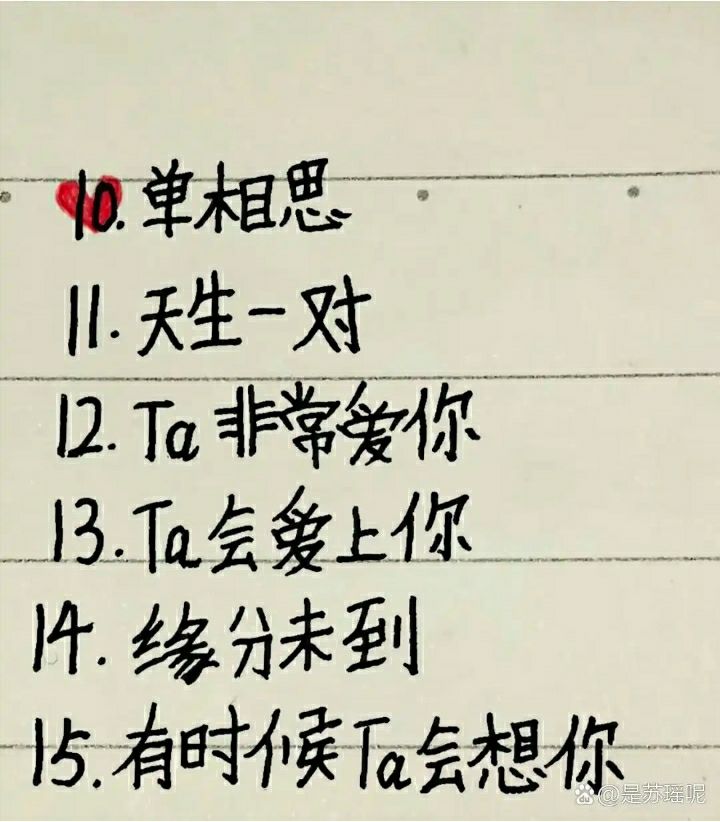 10. 单相思
11. 天生一对
12. Ta非常爱你
13. Ta会爱上你
14. 缘分未到
15. 有时候Ta会想你
@是苏瑶呢